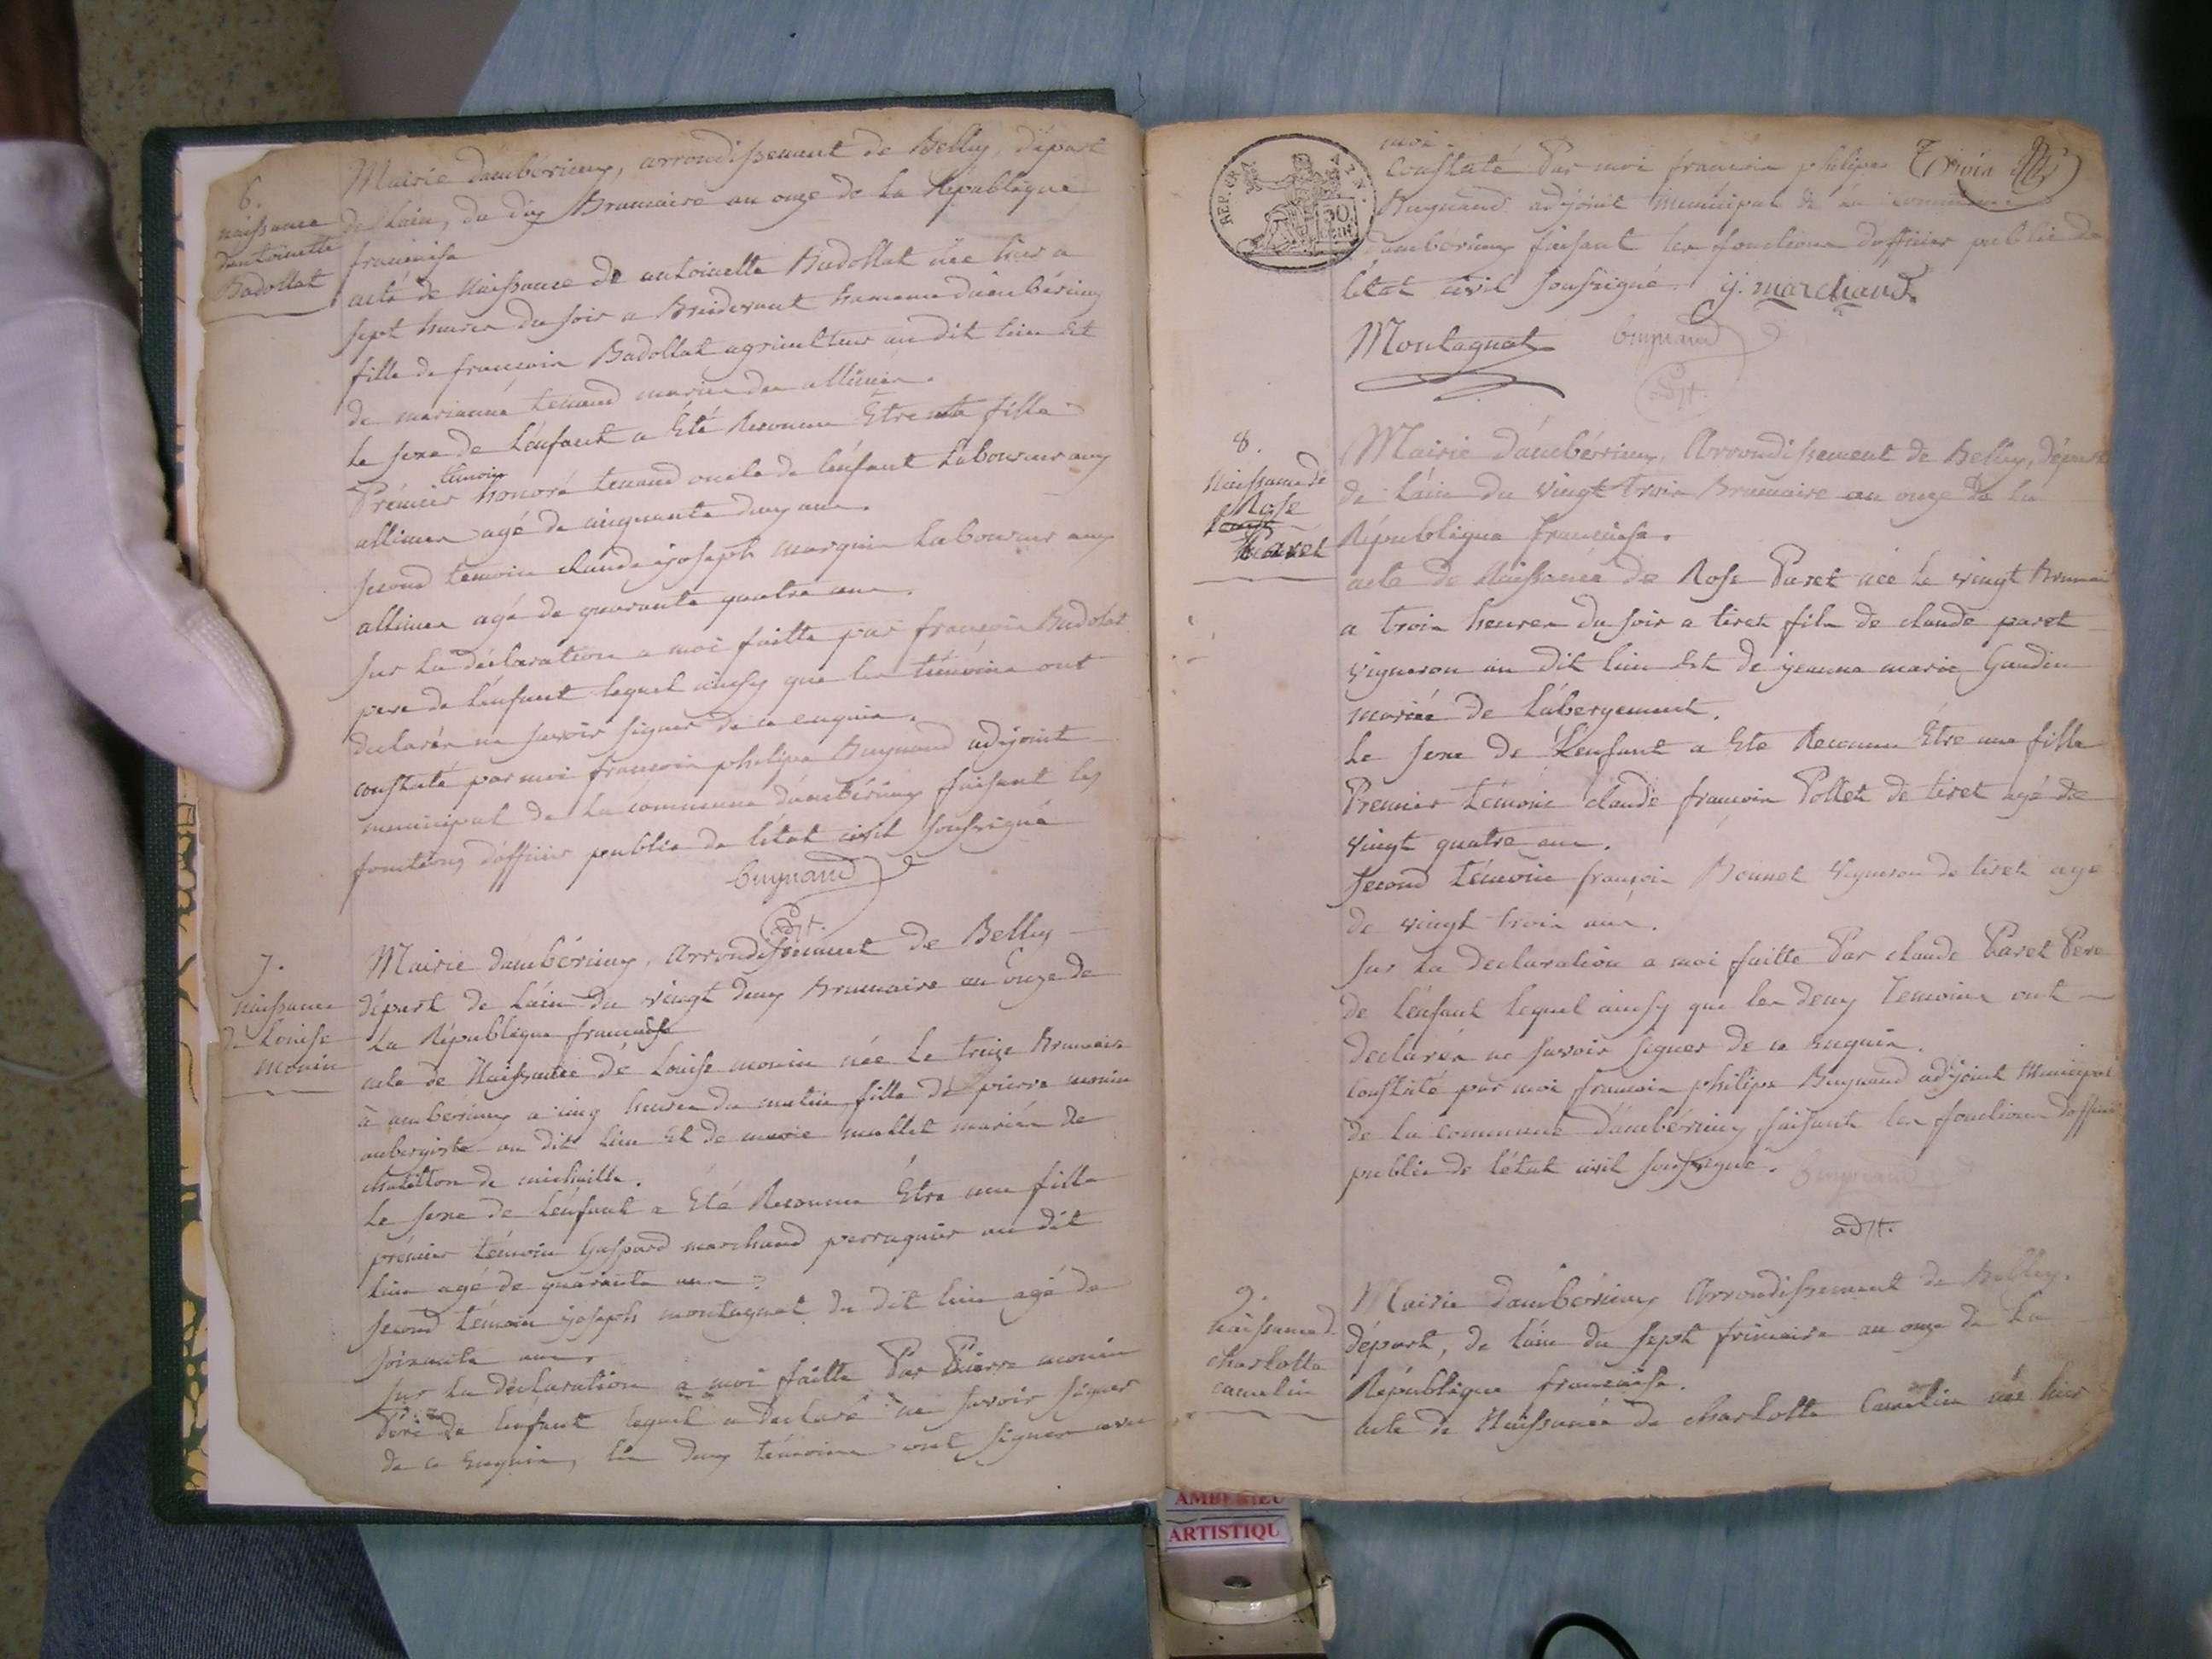 6.
naissance
dantoinette
Badollat
Mairie d'ambérieux, arrondissement de Belley, départ
de L'ain, du dix Brumaire an onze de la République
francaise
acte de Naissance de antoinette Badollat née hier a
sept heures du soir a Breidevent hameau d'ambérieux
fille de francois Badollat agriculteur au dit lieu Et
de marianne tenand mariés des allimes.
Le sexe de L'enfant a Eté Reconnu Etre une fille
Prémier témoin honoré tenand oncle de L'enfant Laboureur aux
allimes agé de cinquante deux ans.
second temoin claude joseph marquis Laboureur aux
allimes agé de quarante quatre ans.
sur la déclaration a moi faitte par francois Badolat
pere de L'enfant lequel ainsy que les témoins ont
declarés ne savoir signer de ce enquis.
constaté par moi francois philipe Bugnand adjoint
municipal de La commune d'ambérieux faisant les
fonctions d'officier public de L'état civil soussigné
Bugnand
adjt.
7.
naissance
de Louise
monin
Mairie d'ambérieux, Arrondissement de Belley
départ de L'ain du vingt deux Brumaire an onze de
La République francaise
acte de Naissance de Louise monin née Le treize Brumaire
à ambérieux a cinq heures du matin fille de pierre monin
aubergiste au dit lieu Et de marie mallet mariés de
chatillon de michaille.
Le sexe de L'enfant a Eté Reconnu Etre une fille
prémier témoin Gaspard marchand perruquier au dit
lieu agé de quarante ans
second témoin joseph montagnat du dit lieu agé de
soixante ans.
sur La déclaration a moi faitte Par Pierre monin
Père de L'enfant lequel a declaré ne savoir signer
de ce Enquis, les deux témoins ont signer avec
REP. FRA
50
moi.
constaté Par moi francois philipe
Bugnand adjoint municipal de la commune
d'ambérieux faisant les fonctions d'officier public de
l'état civil soussigné. g. marchand
Montagnat Bugnand
adjt.
8.
Naissance de
Rose
Paret
Mairie d'ambérieux, Arrondissement de Belley, départ
de L'ain du vingt trois Brumaire an onze de La
République francaise.
acte de Naissance de Rose Paret née Le vingt Brumai
a trois heures du soir a tiret fils de claude paret
vigneron au dit lieu Et de jeanne marie Gaudin
mariée de L'abergement.
Le sexe de L'enfant a Ete Reconnu Etre une fille
Premier témoin claude francois Pollet de tiret agé de
vingt quatre ans.
second témoin francois Bonnet vigneron de tiret agé
de vingt trois ans.
sur La declaration a moi faitte Par claude Paret Pere
de L'enfant lequel ainsy que les deux temoins ont
declarés ne savoir signer de ce Enquis.
constaté par moi francois philipe Bugnand adjoint Municipal
de la commune d'ambérieux faisant les fonctions d'officier
public de L'état civil soussigné. Bugnand
adjt.
9.
Naissance d.
charlotte
camelin
Mairie d'ambérieux Arrondissement de Belley.
départ, de L'ain du sept frimaire an onze de La
République francaise.
acte de Naissance de charlotte Camelin née hier
AMBERIEU
ARTISTIQU